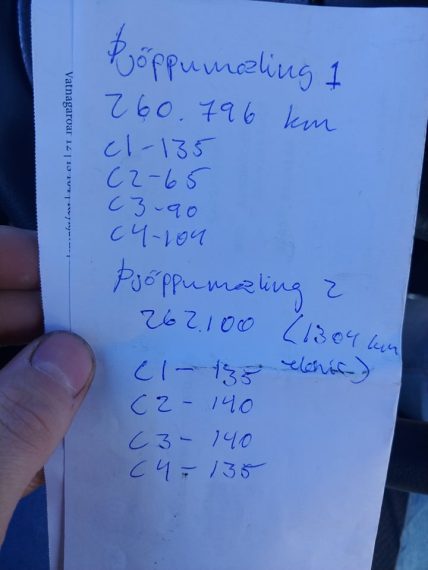 Þjöppumæling 1
260.796 km
C1-135
C2-65
C3-90
C4-104
Þjöppumæling 2
262.100 (1304 km
eknir)
C1 - 135
C2 - 140
C3 - 140
C4 - 135
Vatnagarðar 12 |